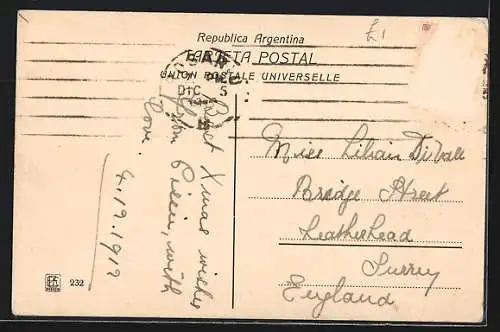 Republica Argentina
£1
TARJETA POSTAL
UNION POSTALE UNIVERSELLE
DIC 5
Best Xmas wishes
from with
love.
4.12.1912
Miss Lilian Di Vall
Bridge Street
Leatherhead
Surrey
England
232